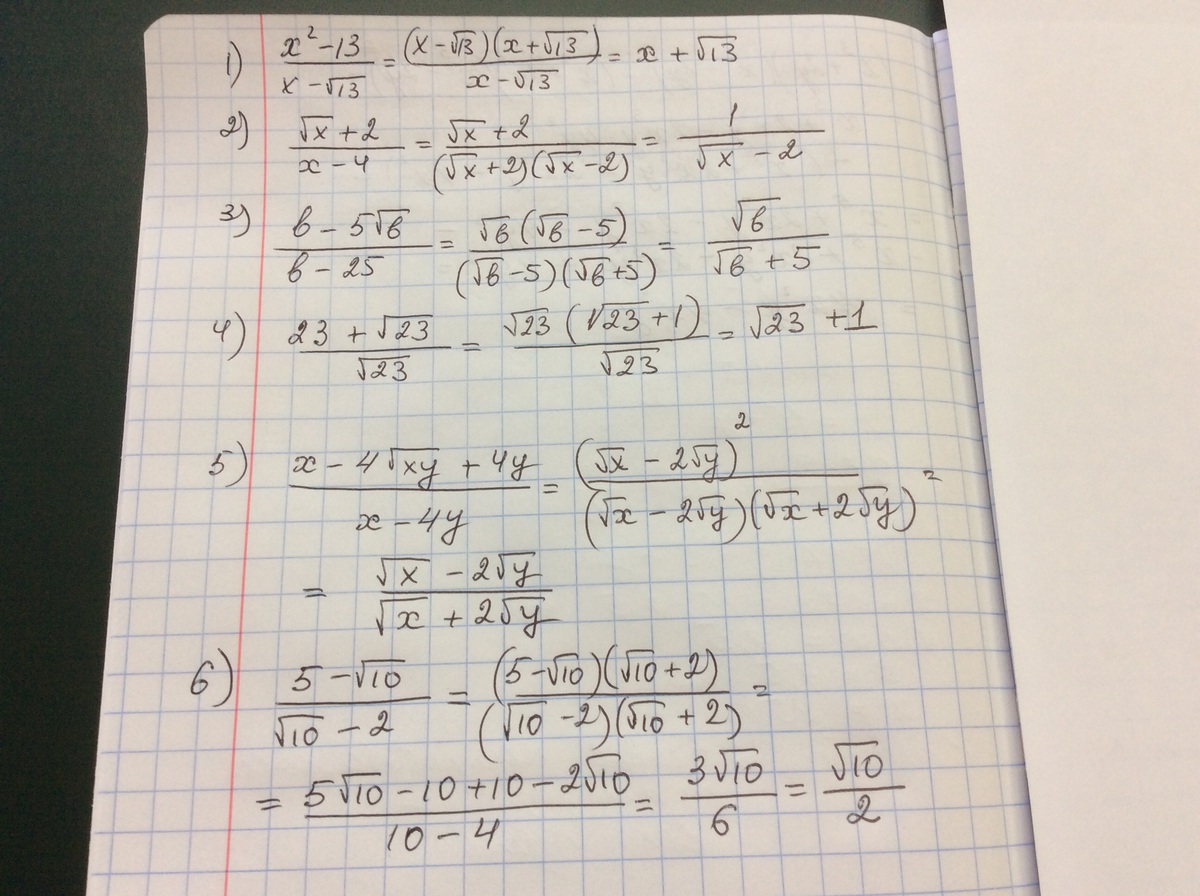 1) (x² - 13)/(x - √13) = ((x - √13)(x + √13))/(x - √13) = x + √13
2) (√x + 2)/(x - 4) = (√x + 2)/((√x + 2)(√x - 2)) = 1/(√x - 2)
3) (в - 5√в)/(в - 25) = (√в(√в - 5))/((√в - 5)(√в + 5)) = √в/(√в + 5)
4) (23 + √23)/√23 = (√23(√23 + 1))/√23 = √23 + 1
5) (x - 4√xy + 4y)/(x - 4y) = (√x - 2√y)²/((√x - 2√y)(√x + 2√y)) =
= (√x - 2√y)/(√x + 2√y)
6) (5 - √10)/(√10 - 2) = ((5 - √10)(√10 + 2))/((√10 - 2)(√10 + 2)) =
= (5√10 - 10 + 10 - 2√10)/(10 - 4) = 3√10/6 = √10/2